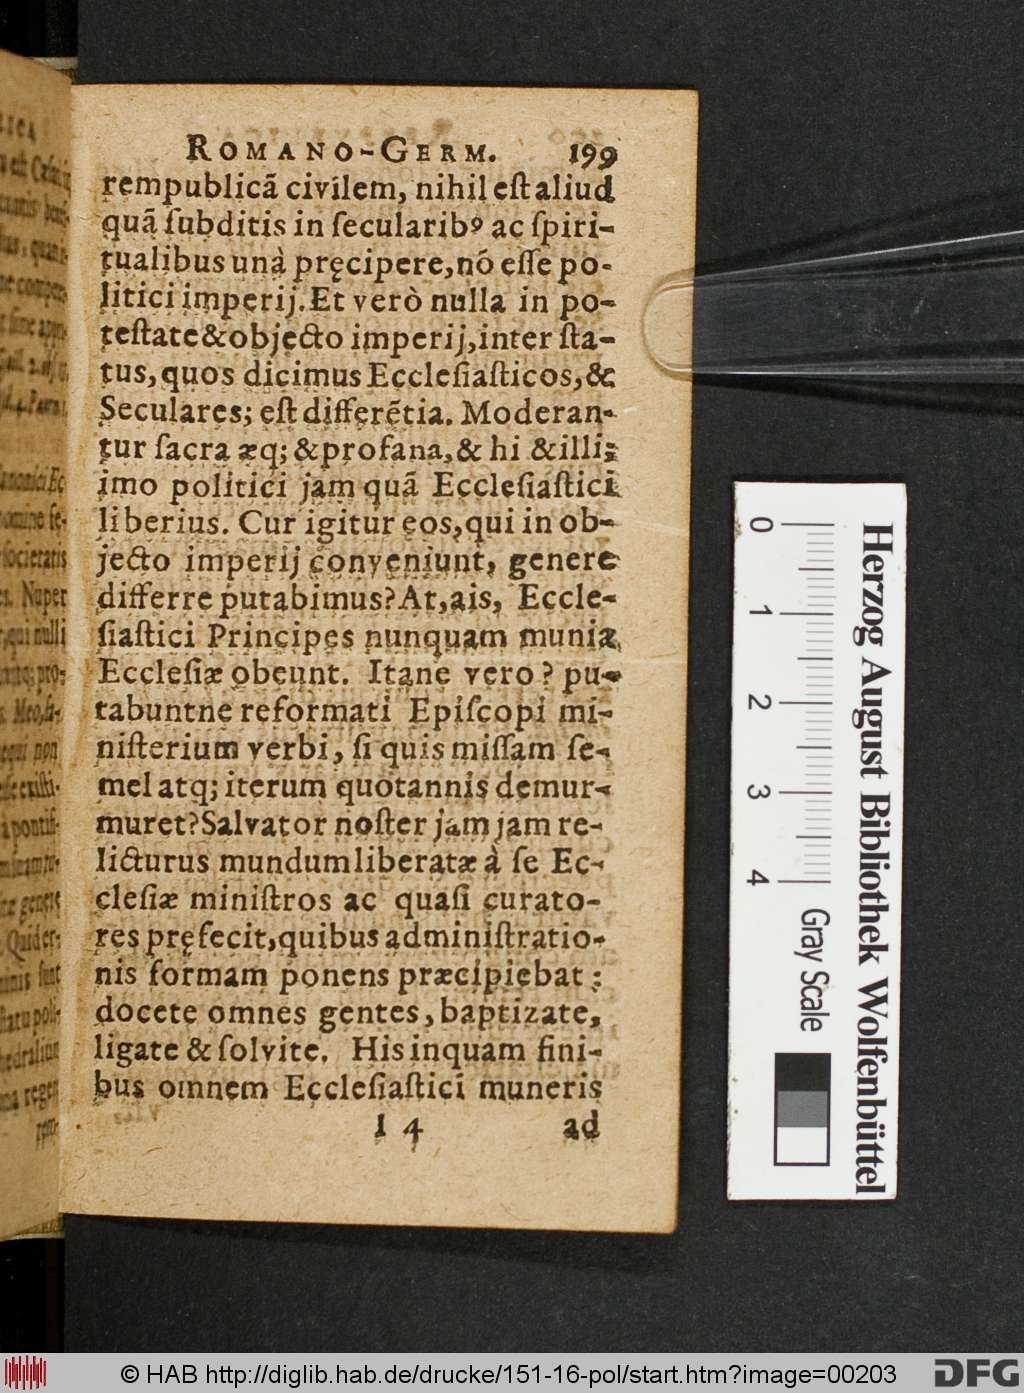 ROMANO-GERM. 199
rempublicã civilem, nihil eſt aliud
quã ſubditis in ſecularibꝰ ac ſpiri-
tualibus unà pręcipere, nó eſſe po-
litici imperij. Et verò nulla in po-
teſtate & objecto imperij, inter ſta-
tus, quos dicimus Eccleſiaſticos, &
Seculares; eſt differẽtia. Moderan-
tur ſacra æq; & profana, & hi & illi;
imo politici jam quã Eccleſiaſtici
liberius. Cur igitur eos, qui in ob-
jecto imperij conveniunt, genere
differre putabimus? At, ais, Eccle-
ſiaſtici Principes nunquam munia
Eccleſiæ obeunt. Itane vero? pu-
tabuntne reformati Epiſcopi mi-
niſterium verbi, ſi quis miſſam ſe-
mel atq; iterum quotannis demur-
muret? Salvator noſter jam jam re-
licturus mundum liberatæ à ſe Ec-
cleſiæ miniſtros ac quaſi curato-
res pręfecit, quibus adminiſtratio-
nis formam ponens præcipiebat:
docete omnes gentes, baptizate,
ligate & ſolvite. His inquam fini-
bus omnem Eccleſiaſtici muneris
I 4 ad
Herzog August Bibliothek Wolfenbüttel
0 1 2 3 4 Gray Scale
© HAB http://diglib.hab.de/drucke/151-16-pol/start.htm?image=00203
DFG